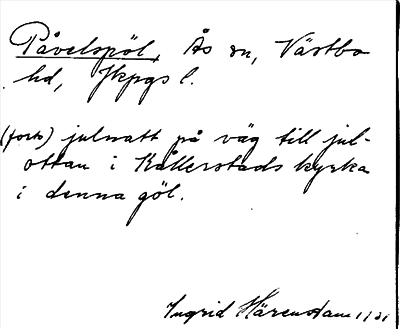 Påvelspöl, Ås sn, Västbo
hd, Jkpgs l.
(forts) julnatt på väg till jul-
ottan i Kållerstads kyrka
i denna göl.
Ingrid Härenstam